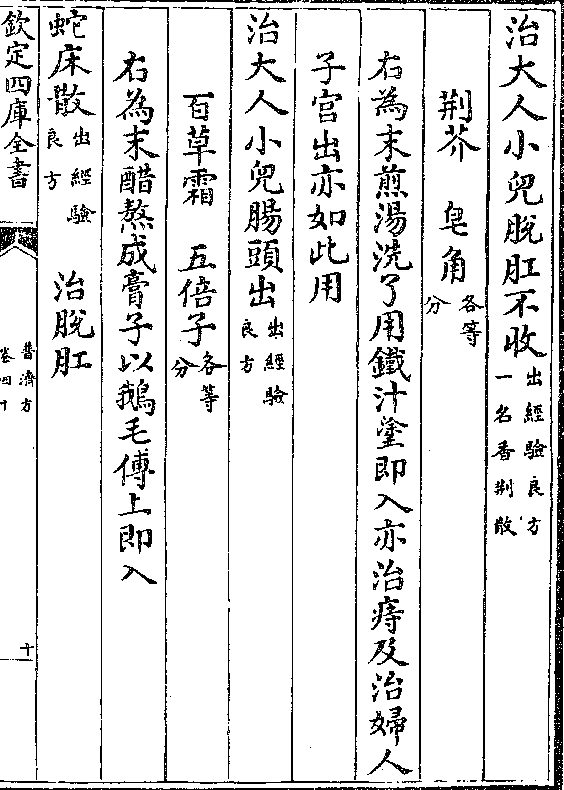 治大人小兒脫肛不收出經驗良方一名香荆散
荆芥　皂角各等分
右為末煎湯洗了用鐵汁塗即入亦治痔及治婦人
子宫出亦如此用
治大人小兒腸頭出出經驗良方
百草霜　五倍子各等分
右為末醋熬成膏子以鵝毛傅上即入
蛇床散出經驗良方　治脫肛
欽定四庫全書
普濟方
卷四十
十